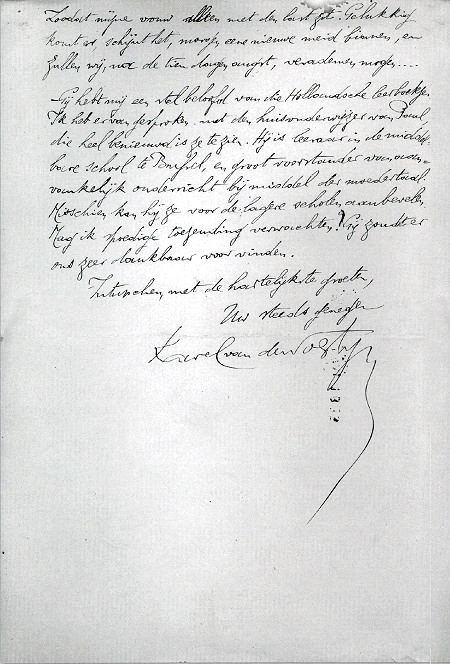 Zoodat mijne vrouw alleen met den last zit. Gelukkig
komt er, schijnt het, morgen eene nieuwe meid binnen, en
zullen wij, na de tien dagen angst, verademen mogen....
Gij hebt mij een stel beloofd van die Hollandsche leesboekjes.
Ik heb er van gesproken met den huisonderwijzer van Paul,
die heel benieuwd is ze te zien. Hij is leeraar in de middel-
bare school te Brussel, en groot voorstander van aan-
vankelijk onderricht bij middel der moedertaal.
Misschien kan hij ze voor de lagere scholen aanbevelen.
Mag ik spoedige toezending verwachten? Gij zoudt er
ons zeer dankbaar voor vinden.
Intusschen, met de hartelijkste groeten,
Uw steeds genegen
Karel van de Woestijne